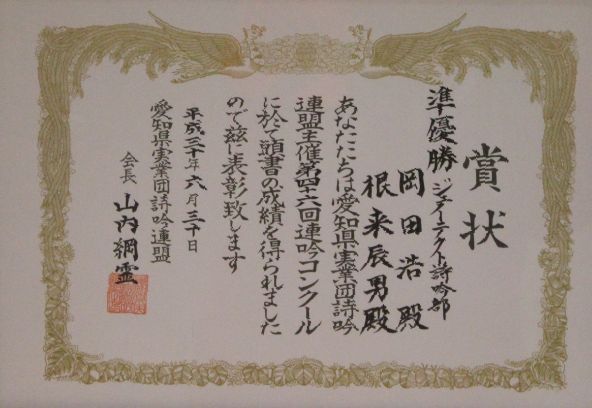 賞状
準優勝 ジェイテクト詩吟部
岡田浩殿
根来辰男殿
あなたたちは愛知県実業団詩吟
連盟主催第四十六回連吟コンクール
に於て頭書の成績を得られました
ので茲に表彰致します
平成三十年六月三十日
愛知県実業団詩吟連盟
会長 山内網霊